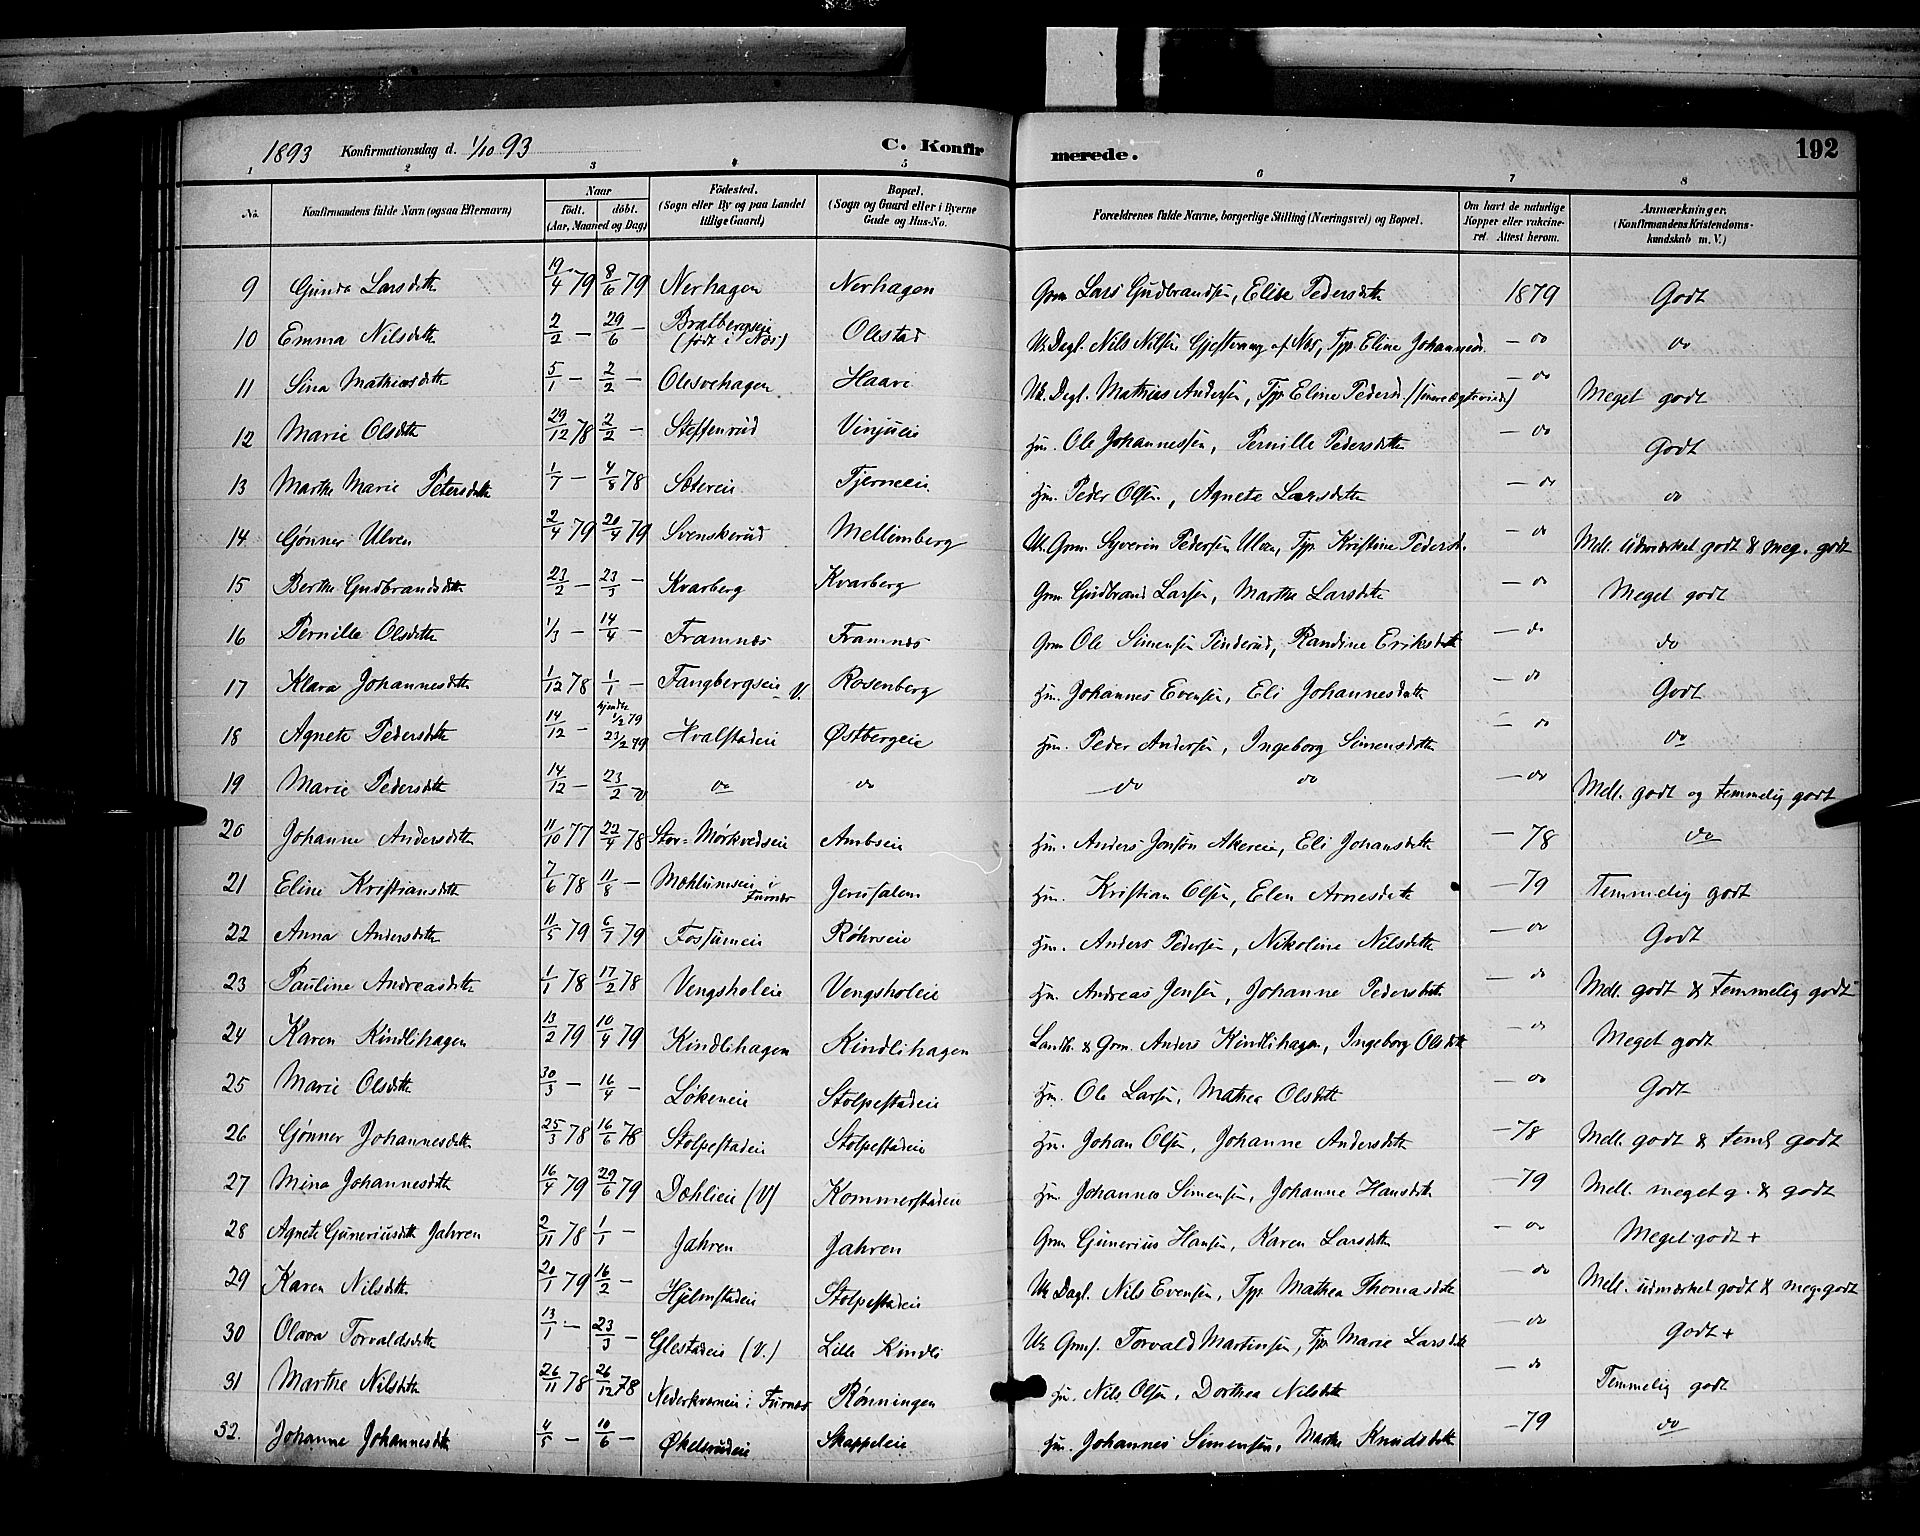 1893 Konfirmationsdag d. 1/10 93 C. Konfirmerede. 192
1 2 3 4 5 6 7 8
No. Konfirmandens fulde Navn (ogsaa Efternavn) Naar födt. döbt. (Aar, Maaned og Dag) Födested. (Sogn eller By og paa Landet tillige Gaard) Bopæl. (Sogn og Gaard eller i Byerne Gade og Hus-No. Forældrenes fulde Navne, borgerlige Stilling (Næringsvei) og Bopæl. Om havt de naturlige Kopper eller vakcineret. Attest herom. Anmærkninger. (Konfirmandens Kristendomskundskab m. V.)
9 Gunda Larsdtr 19/4 79 8/6 79 Nerhagen Nerhagen Grm Lars Gudbrandsen, Elise Pedersdtr 1879 Godt
10 Emma Nilsdtr 2/2 — 29/6 — Bratbergseie (født i Næs) Olestad Uk. Dagl. Nils Nilsen Gjestvang af Næs, Tjp. Eline Johannesd. — do do
11 Lina Mathiasdtr 5/1 — 2/2 — Olesvehagen Haave Uk. Dagl. Mathias Andersen, Tjp Eline Pedersd. — do Meget godt
12 Marie Olsdtr 29/12 78 2/2 — Steffenrud Vinjueie Hm. Ole Johannessen, Pernille Pedersdtr — do Godt
13 Marthe Marie Petersdtr 1/7 — 4/8 78 Sætereie Tjerneeie Hm. Peder Olsen, Agnete Larsdtr — do do
14 Gønner Ulven 2/4 79 20/4 79 Svenskerud Mellemberg Uk. Grm. Syverin Pedersen Ulven, Tjp. Kristine Pedersd. — do Mell. udmærket godt & meg. godt
15 Berthe Gudbrandsdtr 23/2 — 23/3 — Kvarberg Kvarberg Grm Gudbrand Larsen, Marthe Larsdtr — do Meget godt
16 Pernille Olsdtr 1/3 — 14/4 — Framnæs Framnæs Grm Ole Simensen Tinderud, Randine Eriksdtr — do do
17 Klara Johannesdtr 1/12 78 1/1 — Fangbergseie V. Rosenberg Hm. Johannes Evensen, Eli Johannesdtr — do Godt
18 Agnete Pedersdtr 14/12 — hjemdbt 1/2 79 23/2 79 Hvalstadeie Østbergeie Hm. Peder Andersen, Ingeborg Simensdtr — do do
19 Marie Pedersdtr 14/12 — 23/2 79 do do do do — do Mell. godt og temmelig godt
20 Johanne Andersdtr 11/10 77 22/4 78 Stor-Mørkvedseie Ambseie Hm. Anders Jonsen Akereie, Eli Johansdtr — 78 do
21 Eline Kristiansdtr 7/6 78 11/8 — Mæhlumseie i Furnæs Jerusalem Hm. Kristian Olsen, Elen Arnesdtr — 79 Temmelig godt
22 Anna Andersdtr 11/5 79 6/7 79 Fossumeie Røhrseie Hm. Anders Pedersen, Nikoline Nilsdtr — do Godt
23 Pauline Andreasdtr 1/1 78 17/2 78 Vengsholeie Vengsholeie Hm. Andreas Jensen, Johanne Pedersdtr — do Mell. godt & temmelig godt
24 Karen Kindlihagen 13/2 79 10/4 79 Kindlihagen Kindlihagen Landh. & Grm. Anders Kindlihagen, Ingeborg Olsdtr — do Meget godt
25 Marie Olsdtr 30/3 — 16/4 — Løkeneie Stolpestadeie Hm. Ole Larsen, Mathea Olsdtr — do Godt
26 Gønner Johannesdtr 25/3 78 16/6 78 Stolpestadeie Stolpestadeie Hm. Johan Olsen, Johanne Andersdtr — 78 Mell. godt & teml. godt
27 Mina Johannesdtr 16/4 79 29/6 79 Dæhlieie (V) Kommerstadeie Hm. Johannes Simensen, Johanne Hansdtr — 79 Mell. meget g. & godt
28 Agnete Guneriusdtr Jahren 2/11 78 1/1 — Jahren Jahren Grm Gunerius Hansen, Karen Larsdtr — do Meget godt +
29 Karen Nilsdtr 20/1 79 16/2 — Hjelmstadeie Stolpestadeie Uk Dagl. Nils Evensen, Tjp Mathea Thomasdtr — do Mell. udmærket godt & meg. godt
30 Olava Torvaldsdtr 13/1 — 23/3 — Glestadeie (V.) Lille Kindli Uk Grms. Torvald Martinsen, Tjp Marie Larsdtr — do Godt +
31 Marthe Nilsdtr 26/11 78 26/12 78 Nederkværneie i Furnæs Rønningen Hm. Nils Olsen, Dorthea Nilsdtr — do Temmelig godt
32. Johanne Johannesdtr 4/5 — 10/6 — Økelsrudeie Skappeleie Hm. Johannes Simensen, Marthe Knudsdtr — 79 do